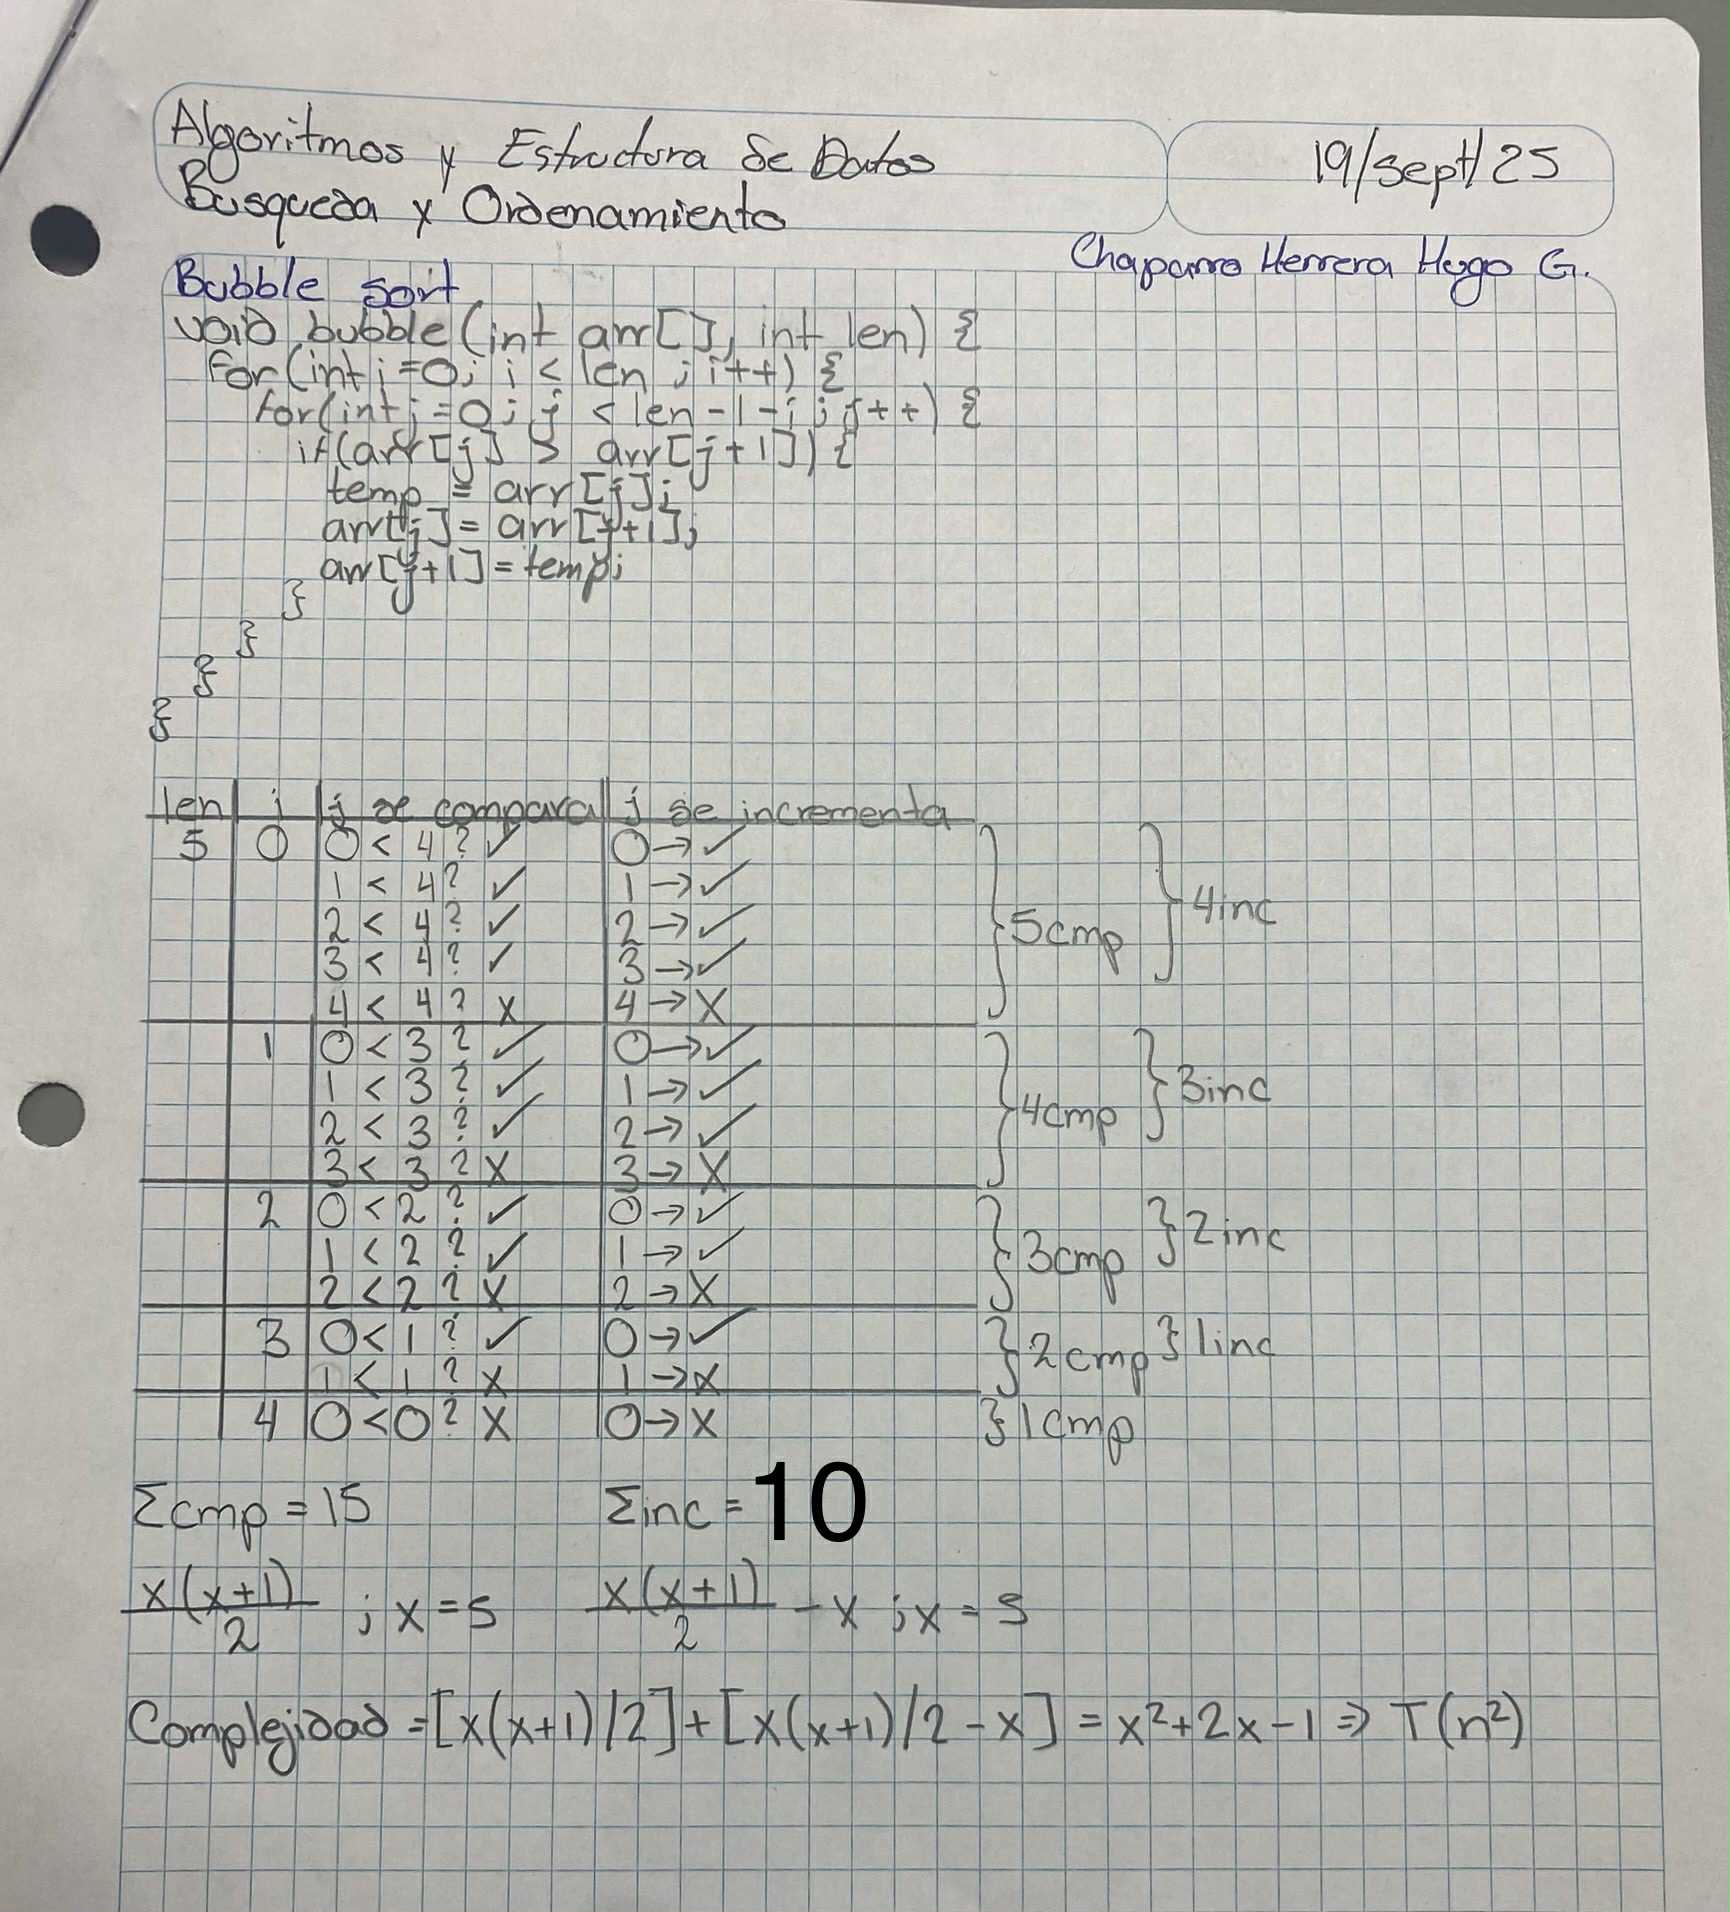 Algoritmos y Estructura de Datos
Busqueda y Ordenamiento
19/sept/25
Chaparro Herrera Hugo G.
Bubble sort
void bubble(int arr[], int len) {
for(int i=0; i < len ; i++) {
for(int j=0; j < len-1-i; j++) {
if(arr[j] > arr[j+1]) {
temp = arr[j];
arr[j] = arr[j+1];
arr[j+1] = temp;
}
}
}
}
len i j se compara j se incrementa
5 0 0 < 4 ? ✓ 0 → ✓
1 < 4 ? ✓ 1 → ✓
2 < 4 ? ✓ 2 → ✓
3 < 4 ? ✓ 3 → ✓
4 < 4 ? x 4 → x
} 5cmp } 4inc
1 0 < 3 ? ✓ 0 → ✓
1 < 3 ? ✓ 1 → ✓
2 < 3 ? ✓ 2 → ✓
3 < 3 ? x 3 → x
} 4cmp } 3inc
2 0 < 2 ? ✓ 0 → ✓
1 < 2 ? ✓ 1 → ✓
2 < 2 ? x 2 → x
} 3cmp } 2inc
3 0 < 1 ? ✓ 0 → ✓
1 < 1 ? x 1 → x
} 2cmp } 1inc
4 0 < 0 ? x 0 → x } 1cmp
Σcmp = 15 Σinc = 10
x(x+1)/2 ; x = 5 x(x+1)/2 - x ; x = 5
Complejidad = [x(x+1)/2] + [x(x+1)/2 - x] = x²+2x-1 ⇒ T(n²)